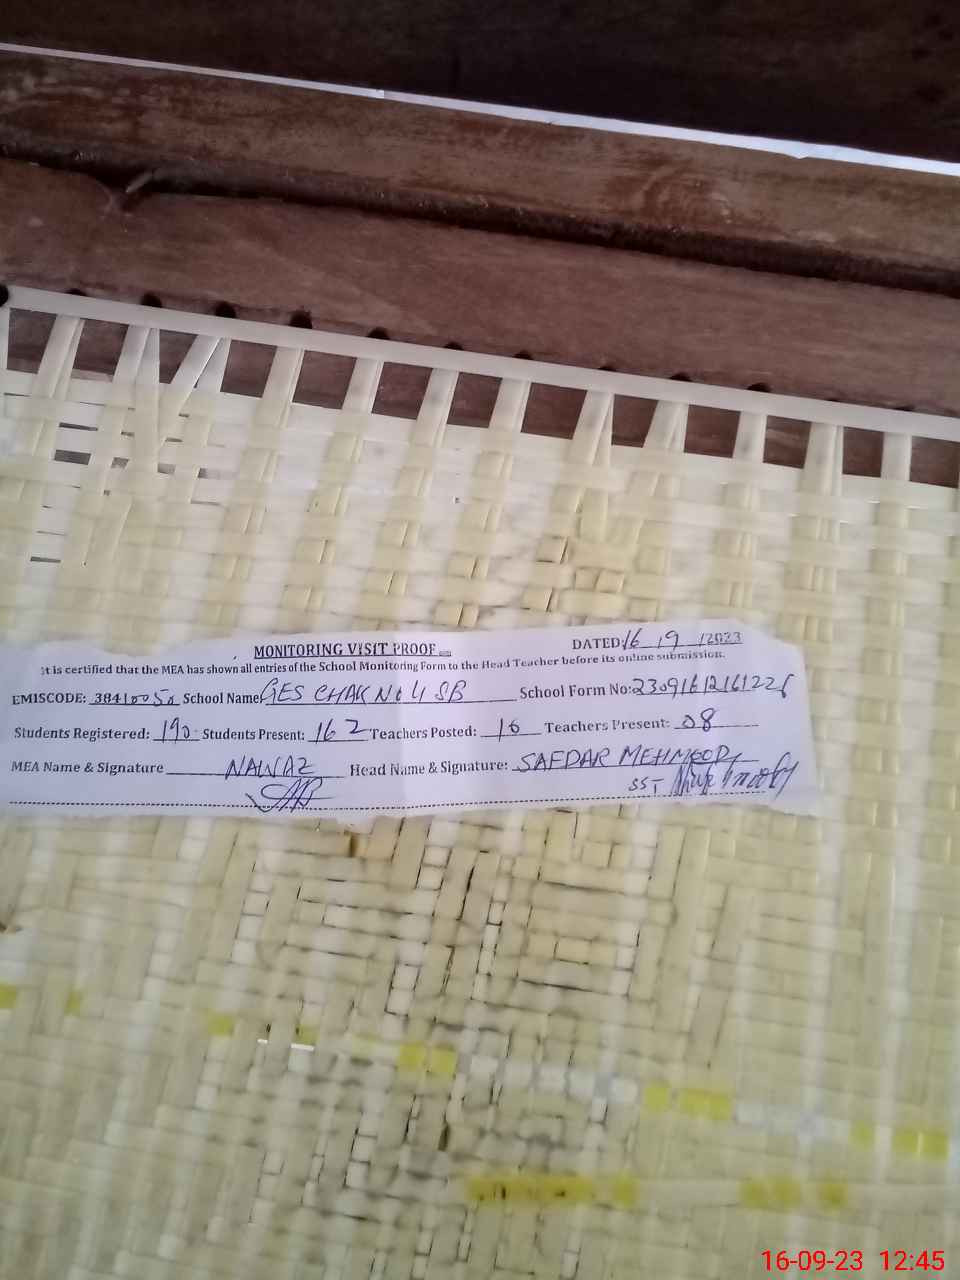 MONITORING VISIT PROOF
DATED: 16 / 9 / 2023
It is certified that the MEA has shown all entries of the School Monitoring Form to the Head Teacher before its online submission.
EMISCODE: 38410050 School Name: GES CHAK No 4 SB School Form No: 2309161216122
Students Registered: 190 Students Present: 162 Teachers Posted: 10 Teachers Present: 08
MEA Name & Signature NAWAZ Head Name & Signature: SAFDAR MEHMOOD
SST
16-09-23 12:45